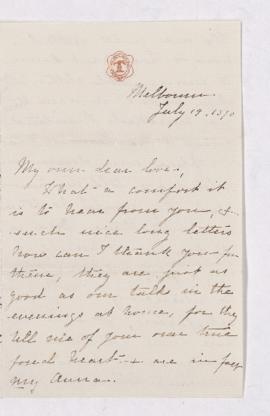 Melbourne.
July 19. 1890
My own dear love,
What a comfort it
is to hear from you, &
such nice long letters
how can I thank you for
them, they are just as
good as our talks in the
evenings at home, for they
tell me of your own true
fond heart & are in fact
my Anna.